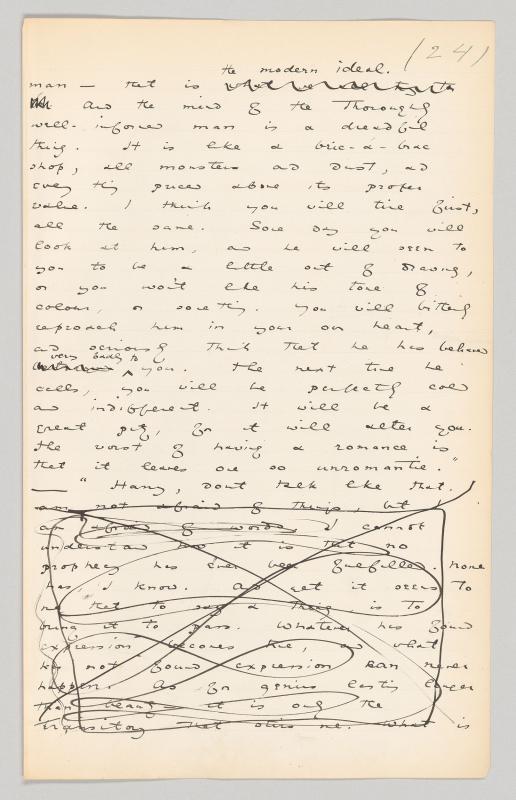 (24)
the modern ideal.
man — that is
And the mind of the Thoroughly
well-informed man is a dreadful
thing. It is like a bric-a-brac
shop, all monsters and dust, and
every thing priced above its proper
value. I think you will tire first,
all the same. Some day you will
look at him, and he will seem to
you to be a little out of drawing,
or you won't like his tone of
colour, or something. You will bitterly
reproach him in your own heart,
and seriously think that he has behaved
very badly to
you. The next time he
calls, you will be perfectly cold
and indifferent. It will be a
great pity, for it will alter you.
The worst of having a romance is
that it leaves one so unromantic."
— "Harry, don't talk like that.
am not afraid of things, but I
am afraid of words. I cannot
understand how it is that no
prophecy has ever been fulfilled. None
has, I know. And yet it seems to
me that to say a thing is to
bring it to pass. Whatever has found
expression becomes true, and what
has not found expression can never
happen. As for genius lasting longer
than beauty it is only the
transitory that stirs me. What is